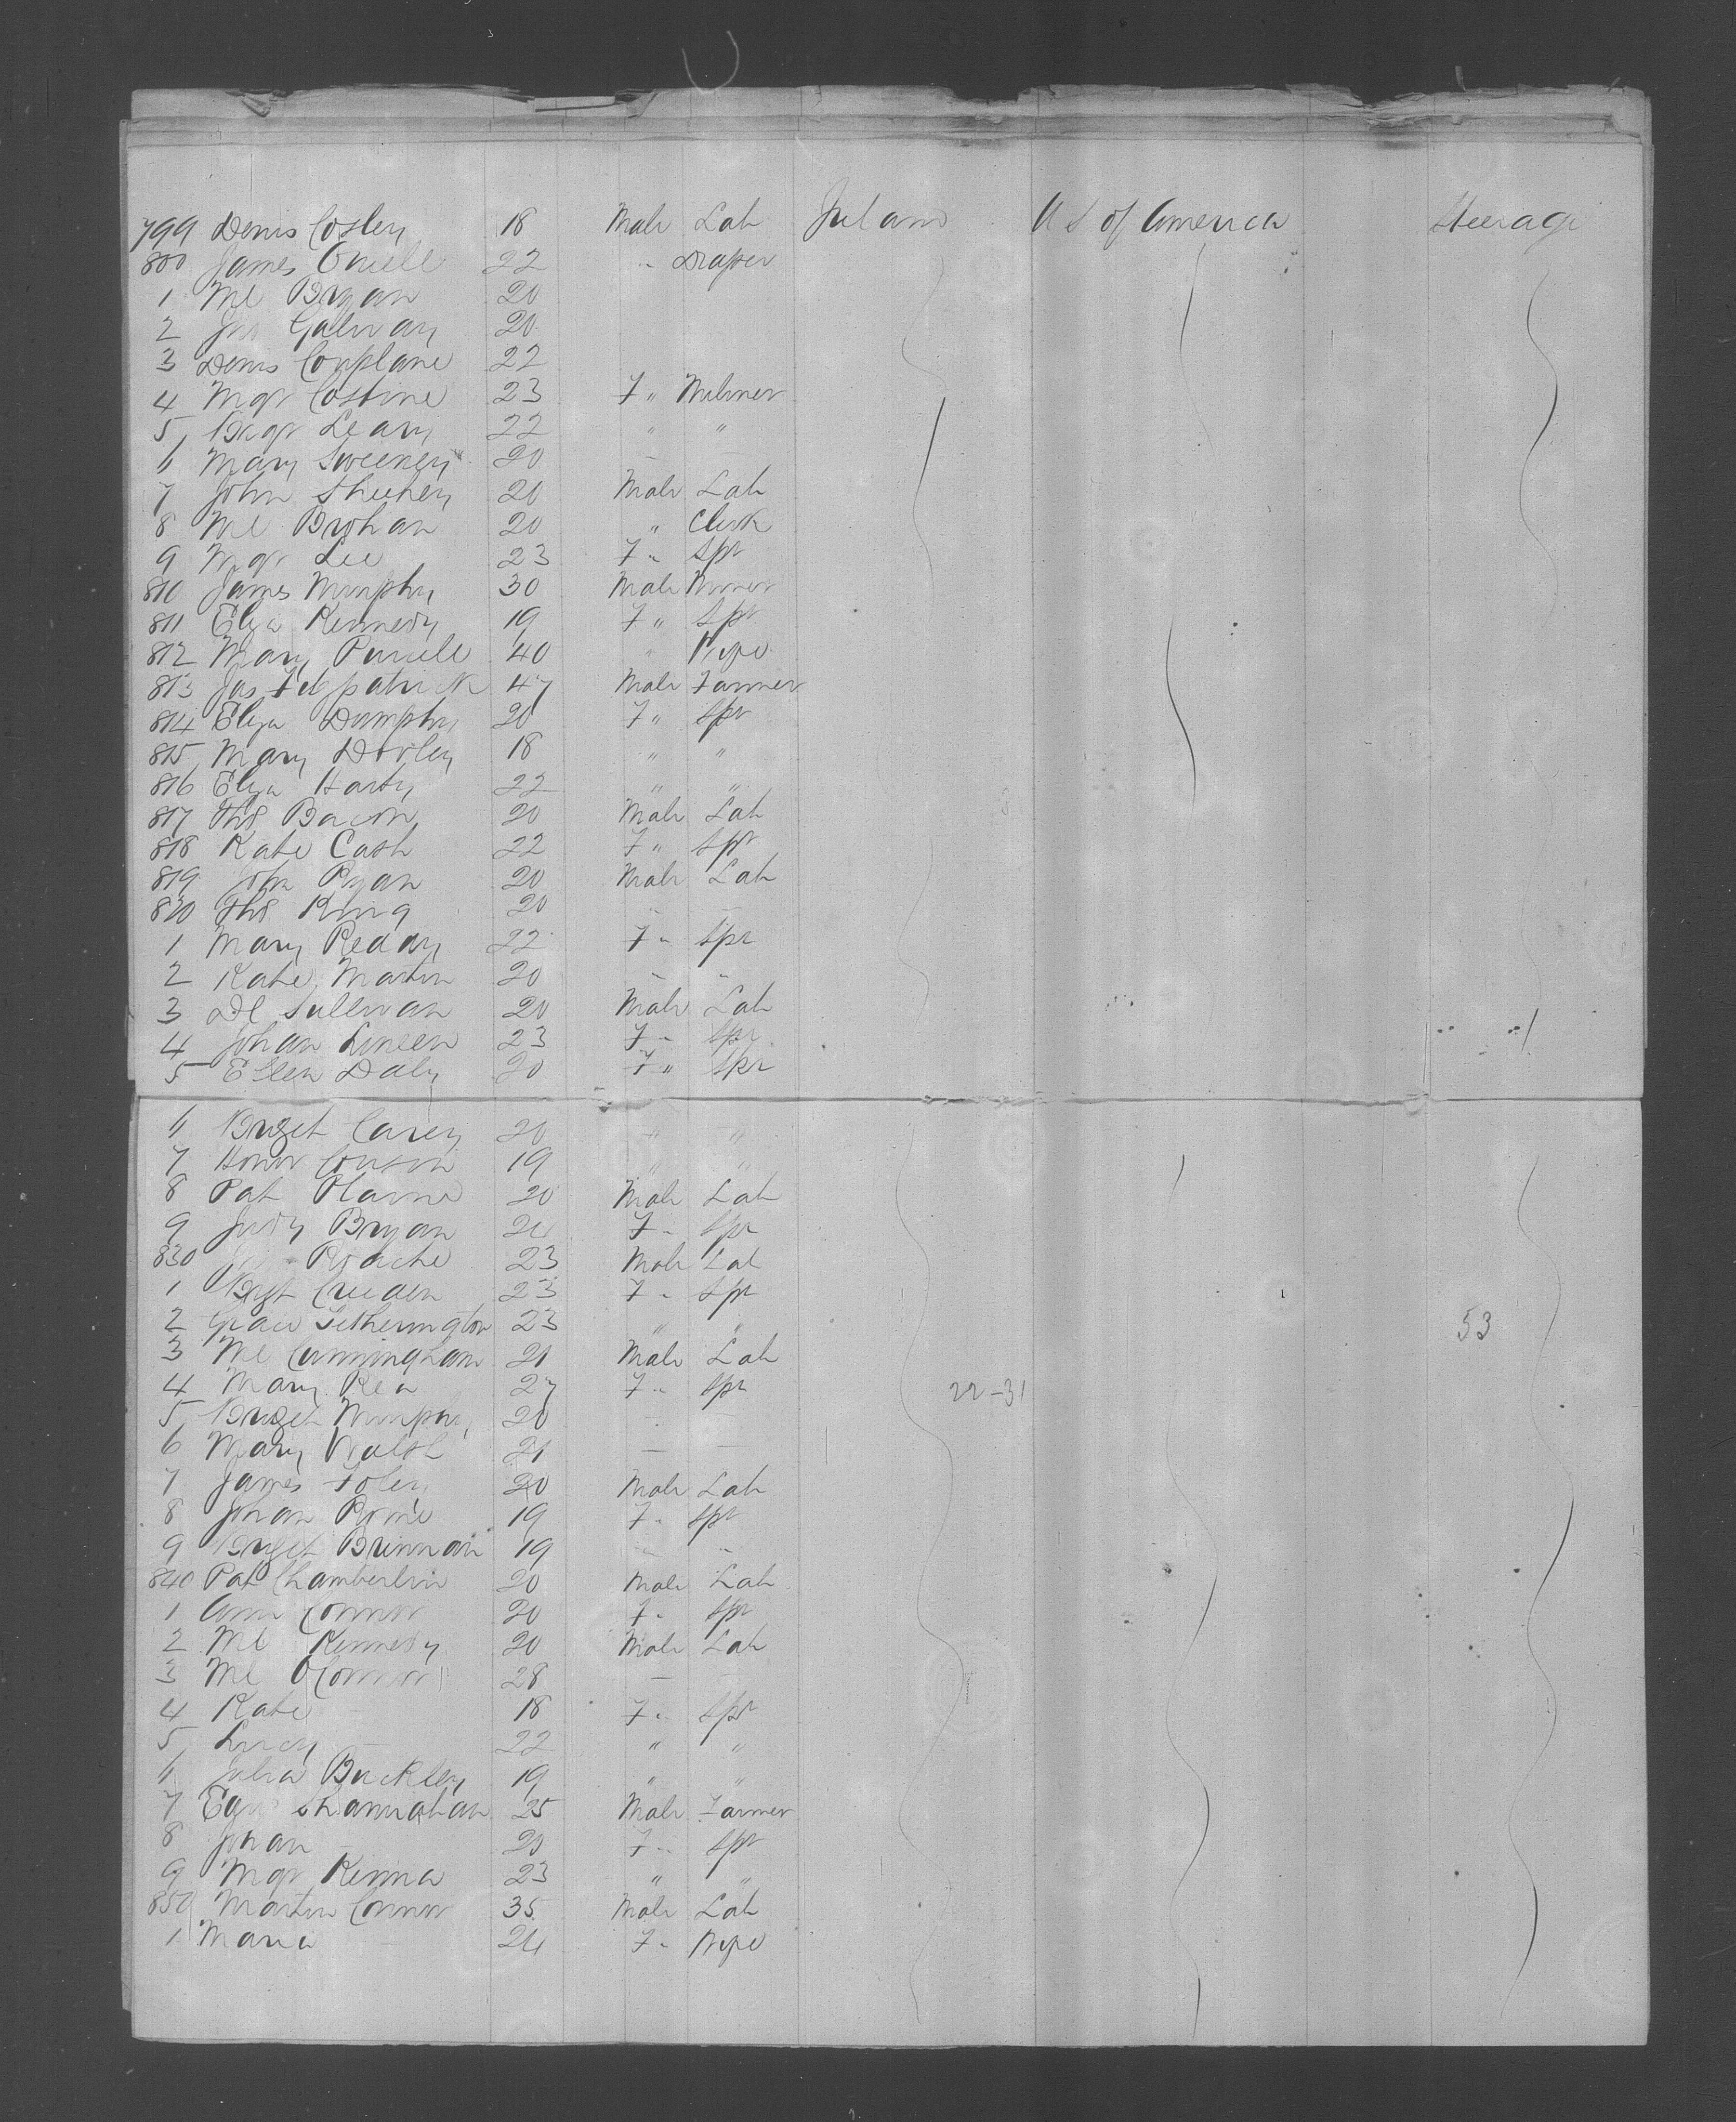 799 Denis Cosley 18 Male Lab Ireland U S of America Steerage
800 James Oneill 22 " Draper
1 Ml Bryan 20
2 Jas Galway 20
3 Denis Couplane 22
4 Mgr Costine 23 F " Milliner
5 Brgr Leary 22 " "
6 Mary Sweeney 20
7 John Sheehey 20 Male Lab
8 Ml Brohan 20 " Clerk
9 Mgr Lee 23 F " Spr
810 James Murphy 30 Male Miner
811 Eliza Kennedy 19 F " Spr
812 Mary Purcell 40 " Wife
813 Jas Fitzpatrick 47 Male Farmer
814 Eliza Dumphy 20 F " Spr
815 Mary Dooley 18 " "
816 Eliza Harty 22 " "
817 Ths Bacon 20 Male Lab
818 Kate Cash 22 F " Spr
819 John Ryan 20 Male Lab
820 Ths King 20
1 Mary Reddy 22 F " Spr
2 Kate Martin 20 " "
3 Dl Sullivan 20 Male Lab
4 Johan Lineen 23 F " Spr
5 Ellen Daly 20 F " Spr
6 Bridget Carey 20 " "
7 Honor 19 " "
8 Pat 20 Male Lab
9 Judy Bryan 24 F " Spr
830 Roache 23 Male Lab
1 Bgt Creeden 23 F " Spr
2 Grace Hetherington 23 " " 53
3 Ml Cunningham 21 Male Lab
4 Mary Rea 27 F " Spr 22-31
5 Bridget Murphy 20
6 Mary Walsh 21 — —
7 James Foley 20 Male Lab
8 Johan 19 F " Spr
9 Bridget Brennan 19 " "
840 Pat Chamberlin 20 Male Lab
1 Ann Connor 20 F " Spr
2 Ml Kennedy 20 Male Lab
3 Ml OConnor 28 — —
4 Kate — 18 F " Spr
5 Lucy — 22 " "
6 Julia Buckley 19 " "
7 Shannahan 25 Male Farmer
8 Johan — 20 F " Spr
9 Mgr Kenna 23 " "
850 Martin Connor 35 Male Lab
1 Maria — 24 F " Wife